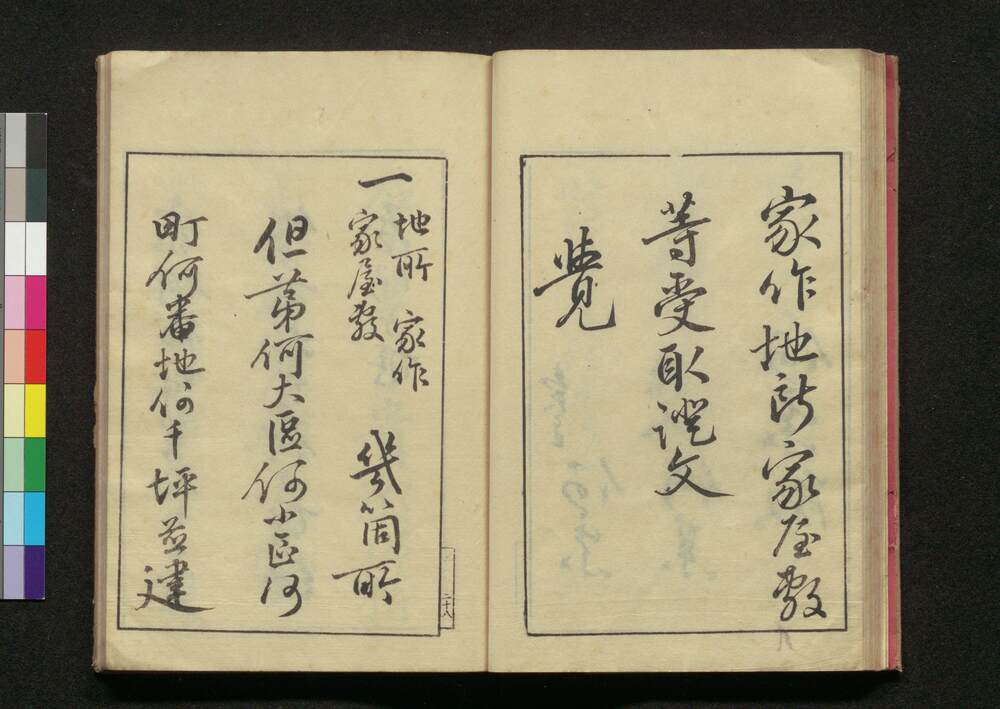 家作地所家屋敷
等受取證文
覺
一 地所 家作
家屋敷
幾箇所
但第何大區何小區何
町何番地何千坪並建
二十八